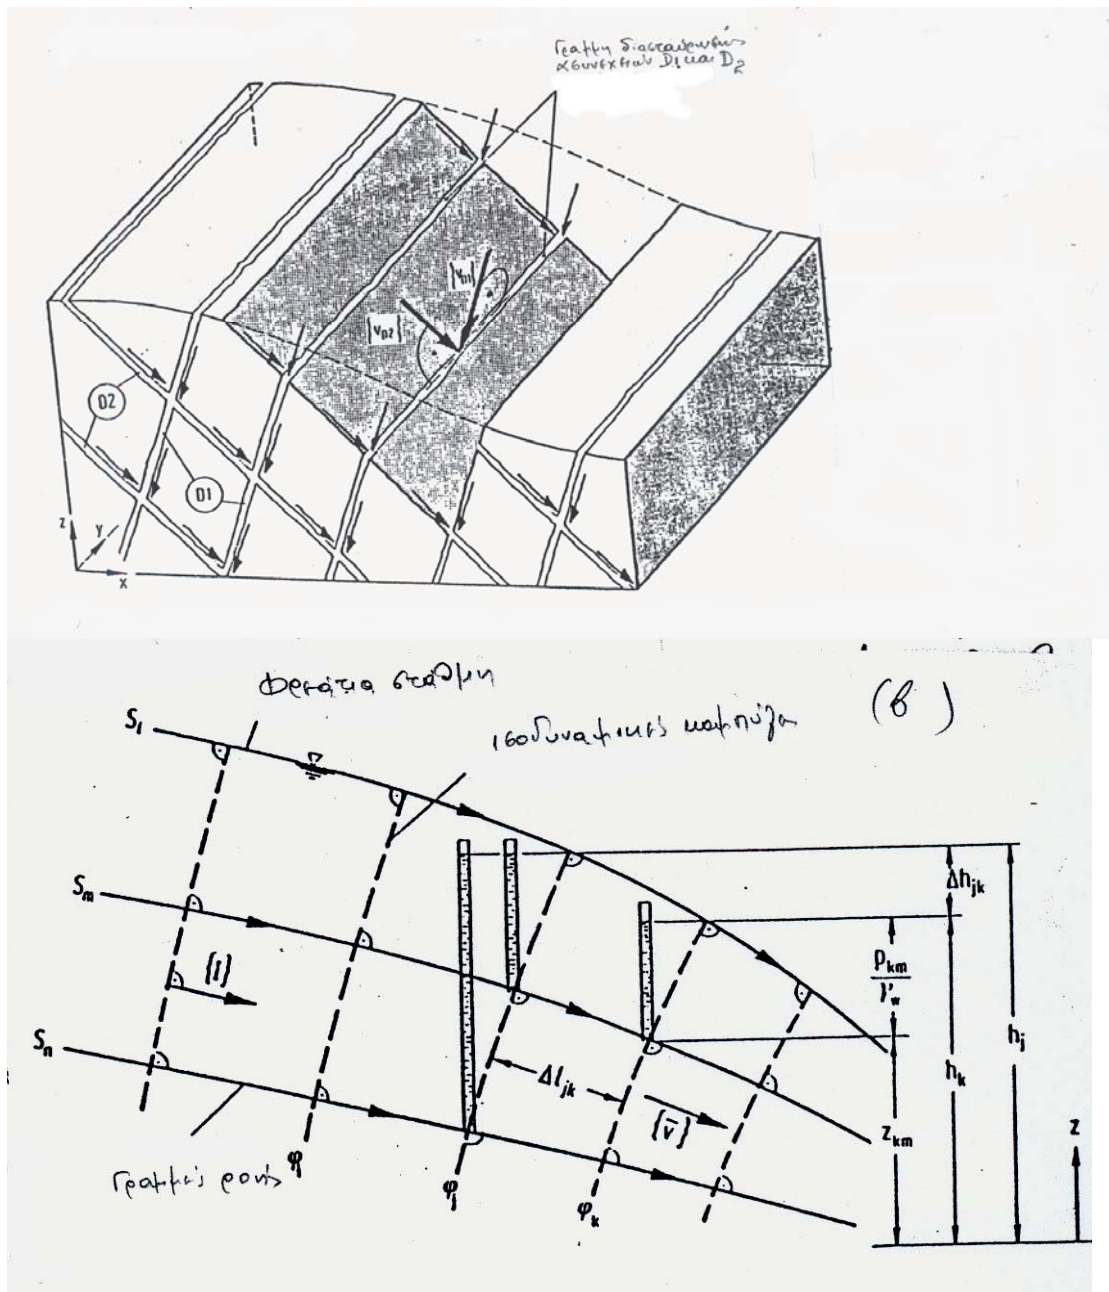 Γραμμή διασταύρωσης
ασυνεχειών D1 και D2
{VD1}
{VD2}
D2
D1
Z
Y
X
Φρεάτια στάθμη
(β)
ισοδυναμικές καμπύλες
S1
Sm
Sn
{I}
Δhjk
pkm
γw
hj
hk
zkm
Δljk
{v̄}
z
Γραμμές ροής
φi
φj
φk